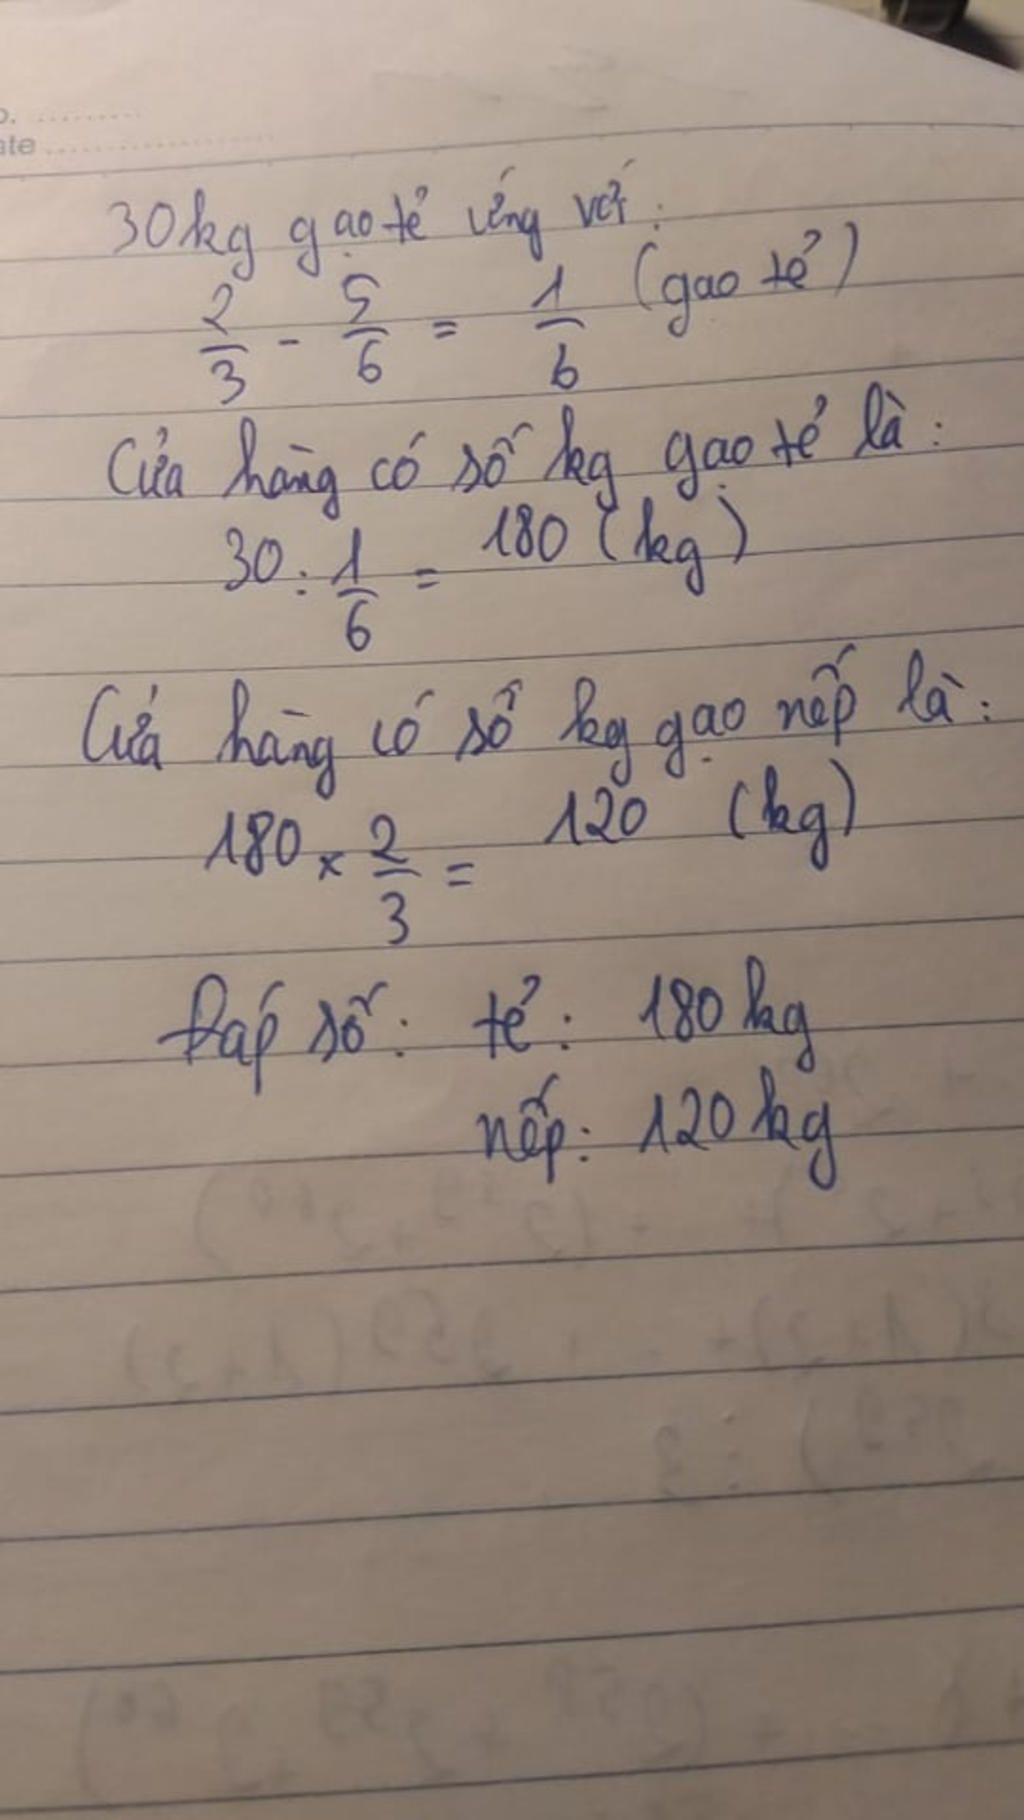 ate
30kg gạo tẻ ứng với:
2/3 - 5/6 = 1/6 (gạo tẻ)
Cửa hàng có số kg gạo tẻ là:
30 : 1/6 = 180 (kg)
Cửa hàng có số kg gạo nếp là:
180 × 2/3 = 120 (kg)
Đáp số: tẻ: 180 kg
nếp: 120 kg